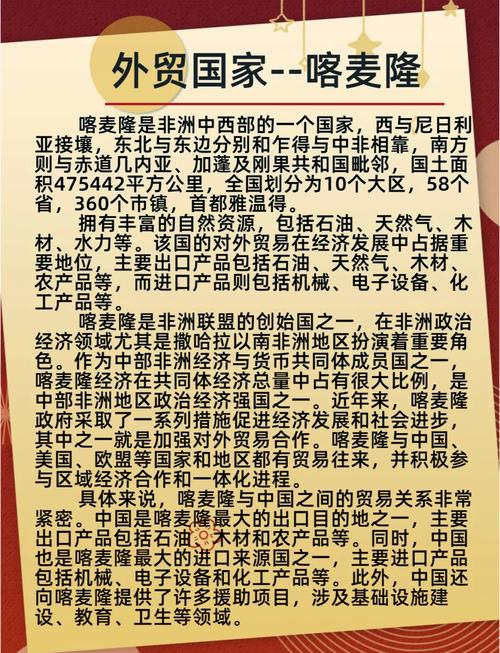 外贸国家--喀麦隆
喀麦隆是非洲中西部的一个国家，西与尼日利
亚接壤，东北与东边分别和乍得与中非相靠，南方
则与赤道几内亚、加蓬及刚果共和国毗邻，国土面
积475442平方公里，全国划分为10个大区，58个
省，360个市镇，首都雅温得。
拥有丰富的自然资源，包括石油、天然气、木
材、水力等。该国的对外贸易在经济发展中占据重
要地位，主要出口产品包括石油、天然气、木材、
农产品等，而进口产品则包括机械、电子设备、化
工产品等。
喀麦隆是非洲联盟的创始国之一，在非洲政治
经济领域尤其是撒哈拉以南非洲地区扮演着重要角
色。作为中部非洲经济与货币共同体成员国之一，
喀麦隆经济在共同体经济总量中占有很大比例，是
中部非洲地区政治经济强国之一。近年来，喀麦隆
政府采取了一系列措施促进经济发展和社会进步，
其中之一就是加强对外贸易合作。喀麦隆与中国、
美国、欧盟等国家和地区都有贸易往来，并积极参
与区域经济合作和一体化进程。
具体来说，喀麦隆与中国之间的贸易关系非常
紧密。中国是喀麦隆最大的出口目的地之一，主要
出口产品包括石油、木材和农产品等。同时，中国
也是喀麦隆最大的进口来源国之一，主要进口产品
包括机械、电子设备和化工产品等。此外，中国还
向喀麦隆提供了许多援助项目，涉及基础设施建
设、教育、卫生等领域。